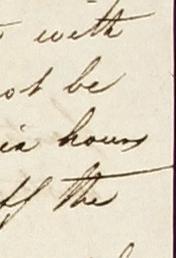 with
not be
in hours
off the